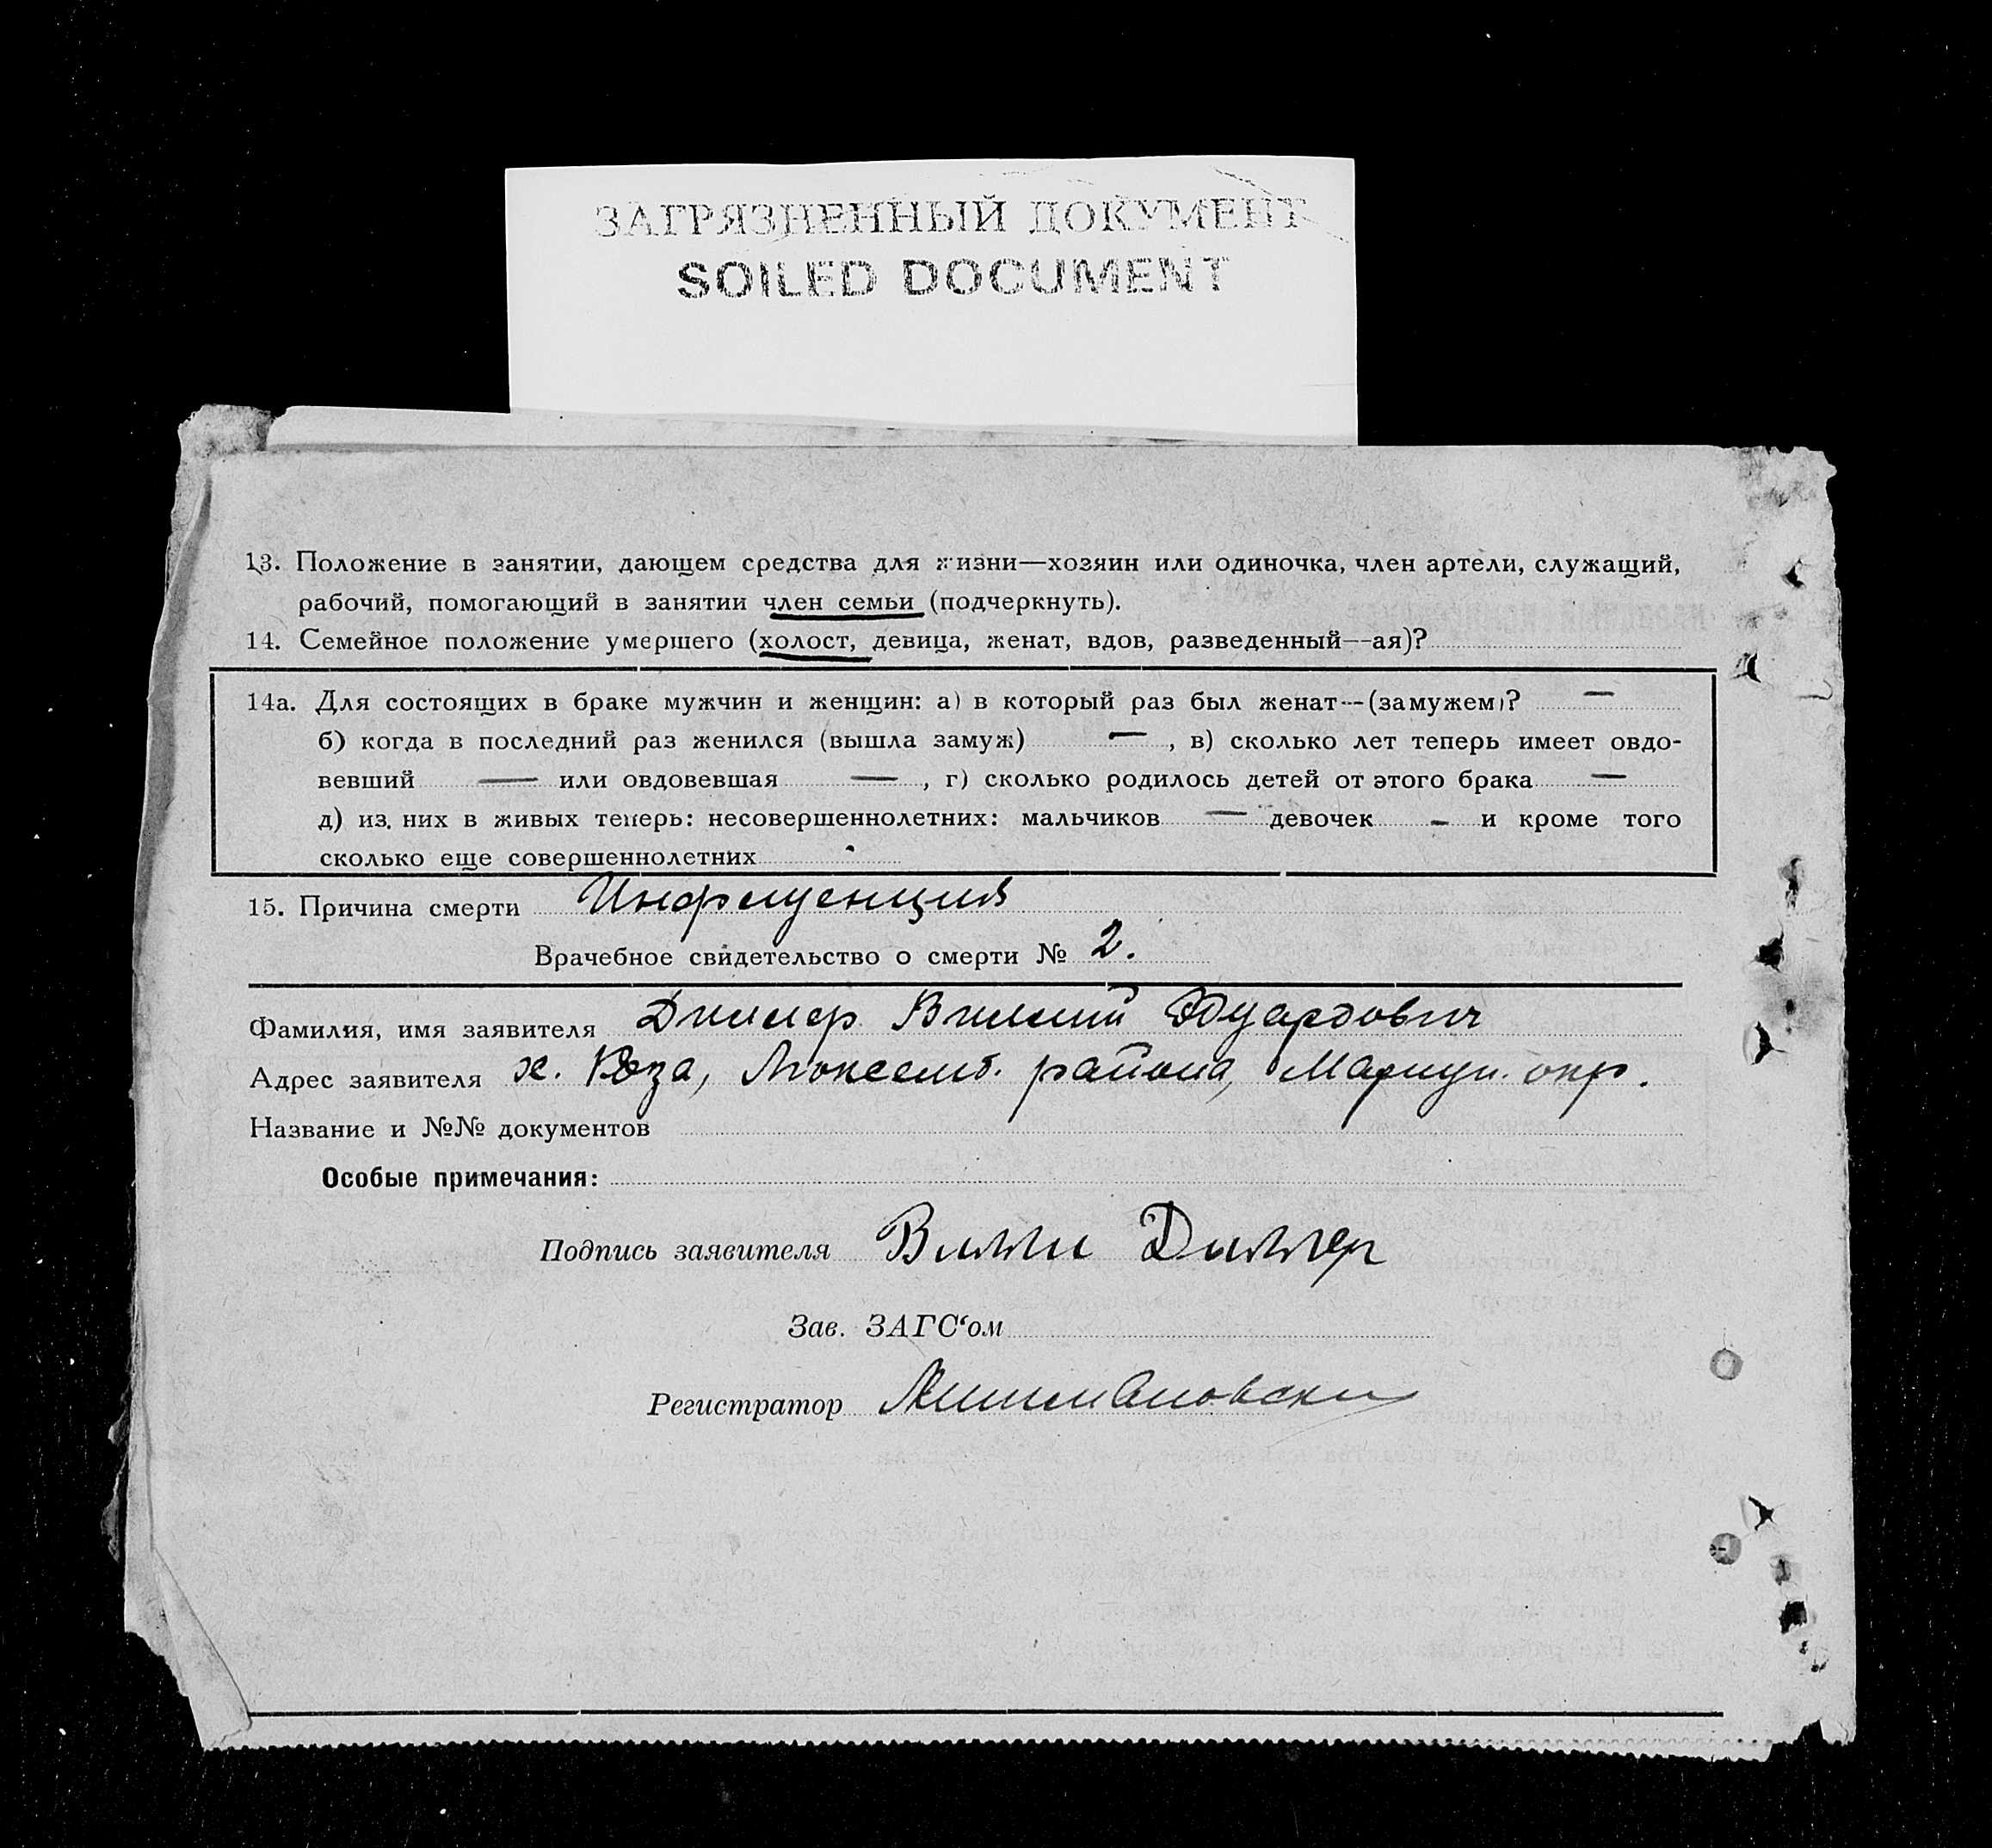 ЗАГРЯЗНЕННЫЙ ДОКУМЕНТ
SOILED DOCUMENT
13. Положение в занятии, дающем средства для жизни—хозяин или одиночка, член артели, служащий,
рабочий, помогающий в занятии член семьи (подчеркнуть).
14. Семейное положение умершего (холост, девица, женат, вдов, разведенный—ая)?
14а. Для состоящих в браке мужчин и женщин: а) в который раз был женат—(замужем)? —
б) когда в последний раз женился (вышла замуж) — , в) сколько лет теперь имеет овдо-
вевший — или овдовевшая — , г) сколько родилось детей от этого брака —
д) из них в живых теперь: несовершеннолетних: мальчиков — девочек - и кроме того
сколько еще совершеннолетних
15. Причина смерти Инфлуенция
Врачебное свидетельство о смерти № 2.
Фамилия, имя заявителя Диллер Вилли Эдуардович
Адрес заявителя х. Роза, Люксемб. района, Мариуп. окр.
Название и №№ документов
Особые примечания:
Подпись заявителя Вилли Диллер
Зав. ЗАГС‘ом
Регистратор